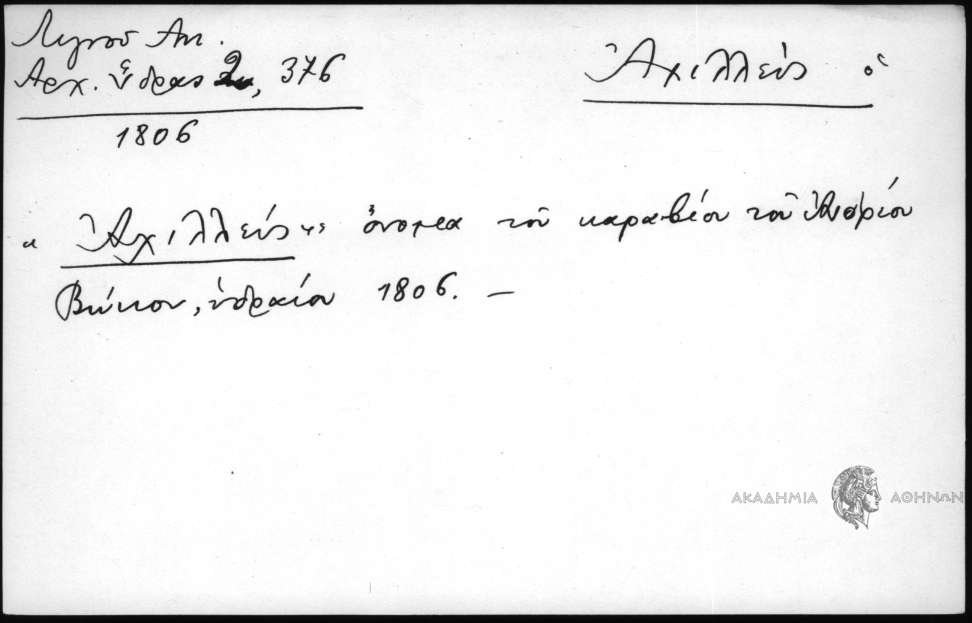 Λιγνού Αντ.
Αρχ. Ὕδρας 2ος, 376
1806
Ἀχιλλεύς ὁ
« Ἀχιλλεύς » ὄνομα τοῦ καραβίου τοῦ
Βώκου, ὑδραίου 1806. —
ΑΚΑΔΗΜΙΑ ΑΘΗΝΩΝ